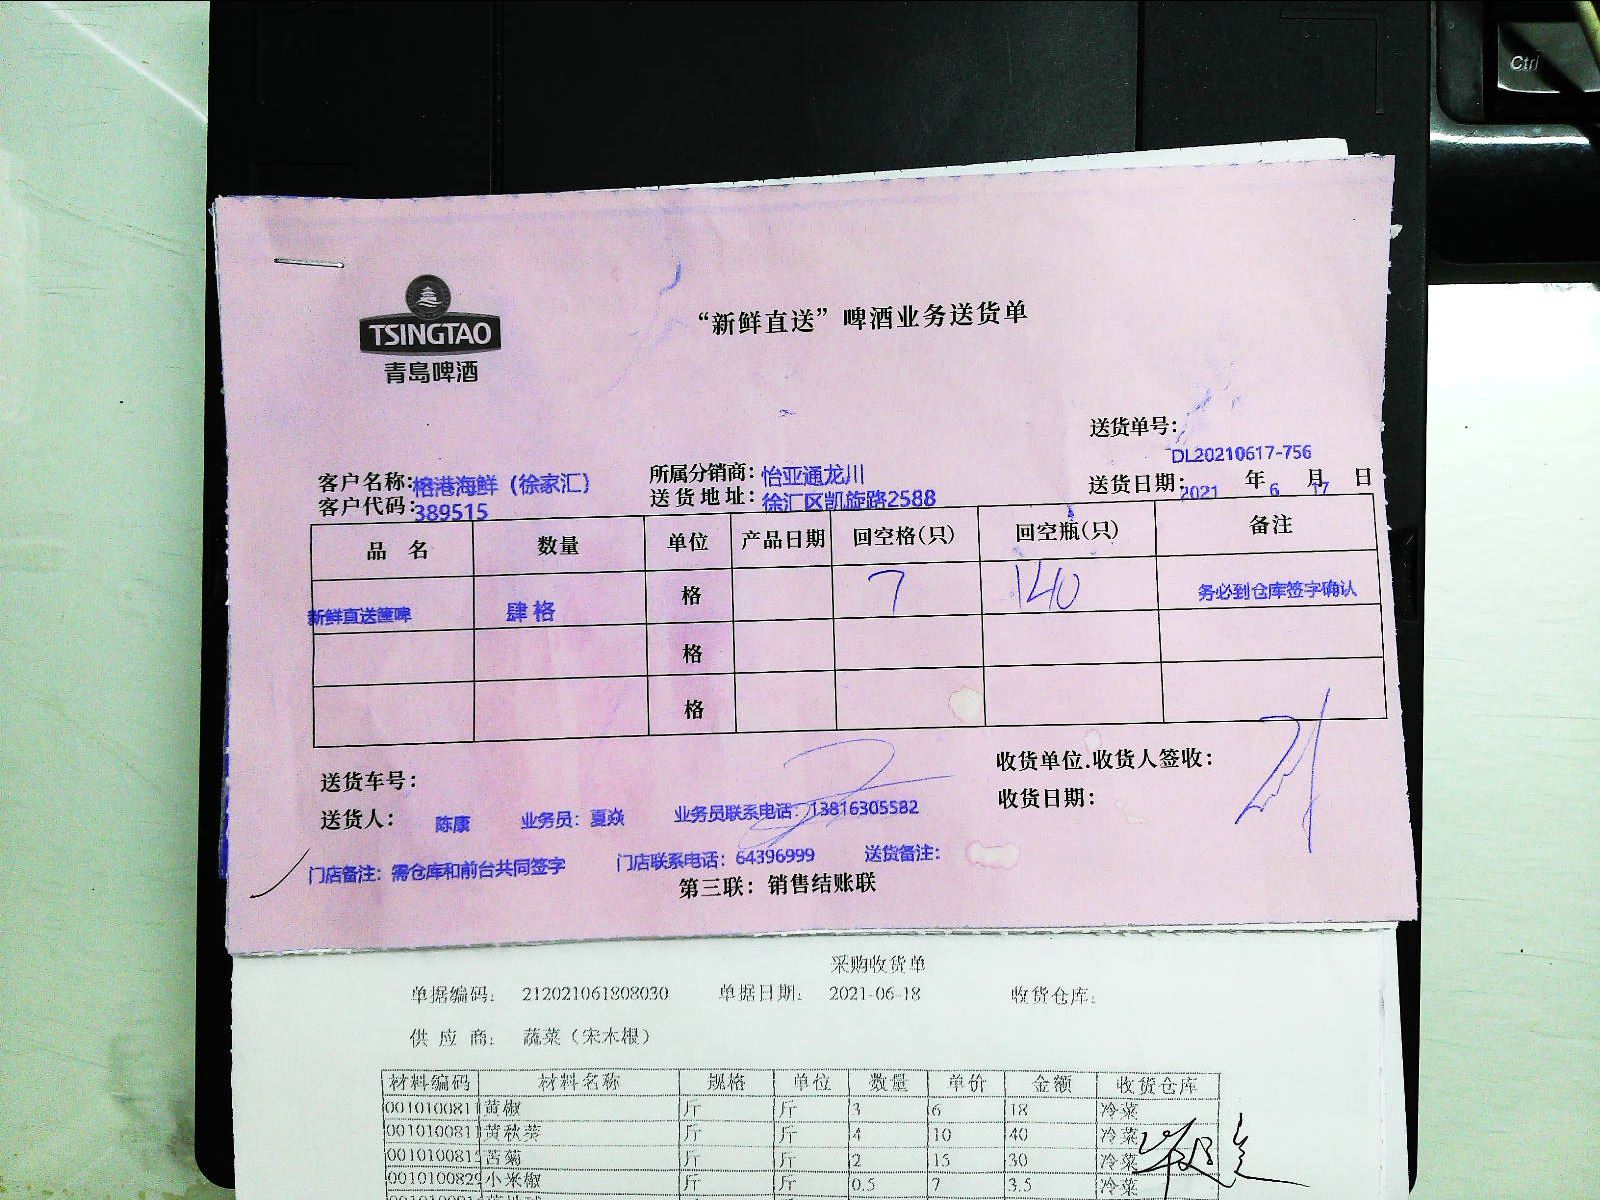 Ctrl
TSINGTAO
青島啤酒
“新鲜直送”啤酒业务送货单
送货单号：
DL20210617-756
客户名称：榕港海鲜（徐家汇） 所属分销商：怡亚通龙川 送货日期：2021 年 6 月 17 日
客户代码：389515 送货地址：徐汇区凯旋路2588
品 名 数量 单位 产品日期 回空格（只） 回空瓶（只） 备注
新鲜直送箽啤 肆格 格 7 140 务必到仓库签字确认
格
格
送货车号： 收货单位.收货人签收：
收货日期：
送货人： 陈康 业务员：夏焱 业务员联系电话：13816305582
门店备注：需仓库和前台共同签字 门店联系电话：64396999 送货备注：
第三联：销售结账联
采购收货单
单据编码： 212021061808030 单据日期： 2021-06-18 收货仓库：
供 应 商： 蔬菜（宋木根）
材料编码 材料名称 规格 单位 数量 单价 金额 收货仓库
001010081 黄椒 斤 斤 3 6 18 冷菜
001010081 黄秋葵 斤 斤 4 10 40 冷菜
001010081 苦菊 斤 斤 2 15 30 冷菜
001010082 小米椒 斤 斤 0.5 7 3.5 冷菜